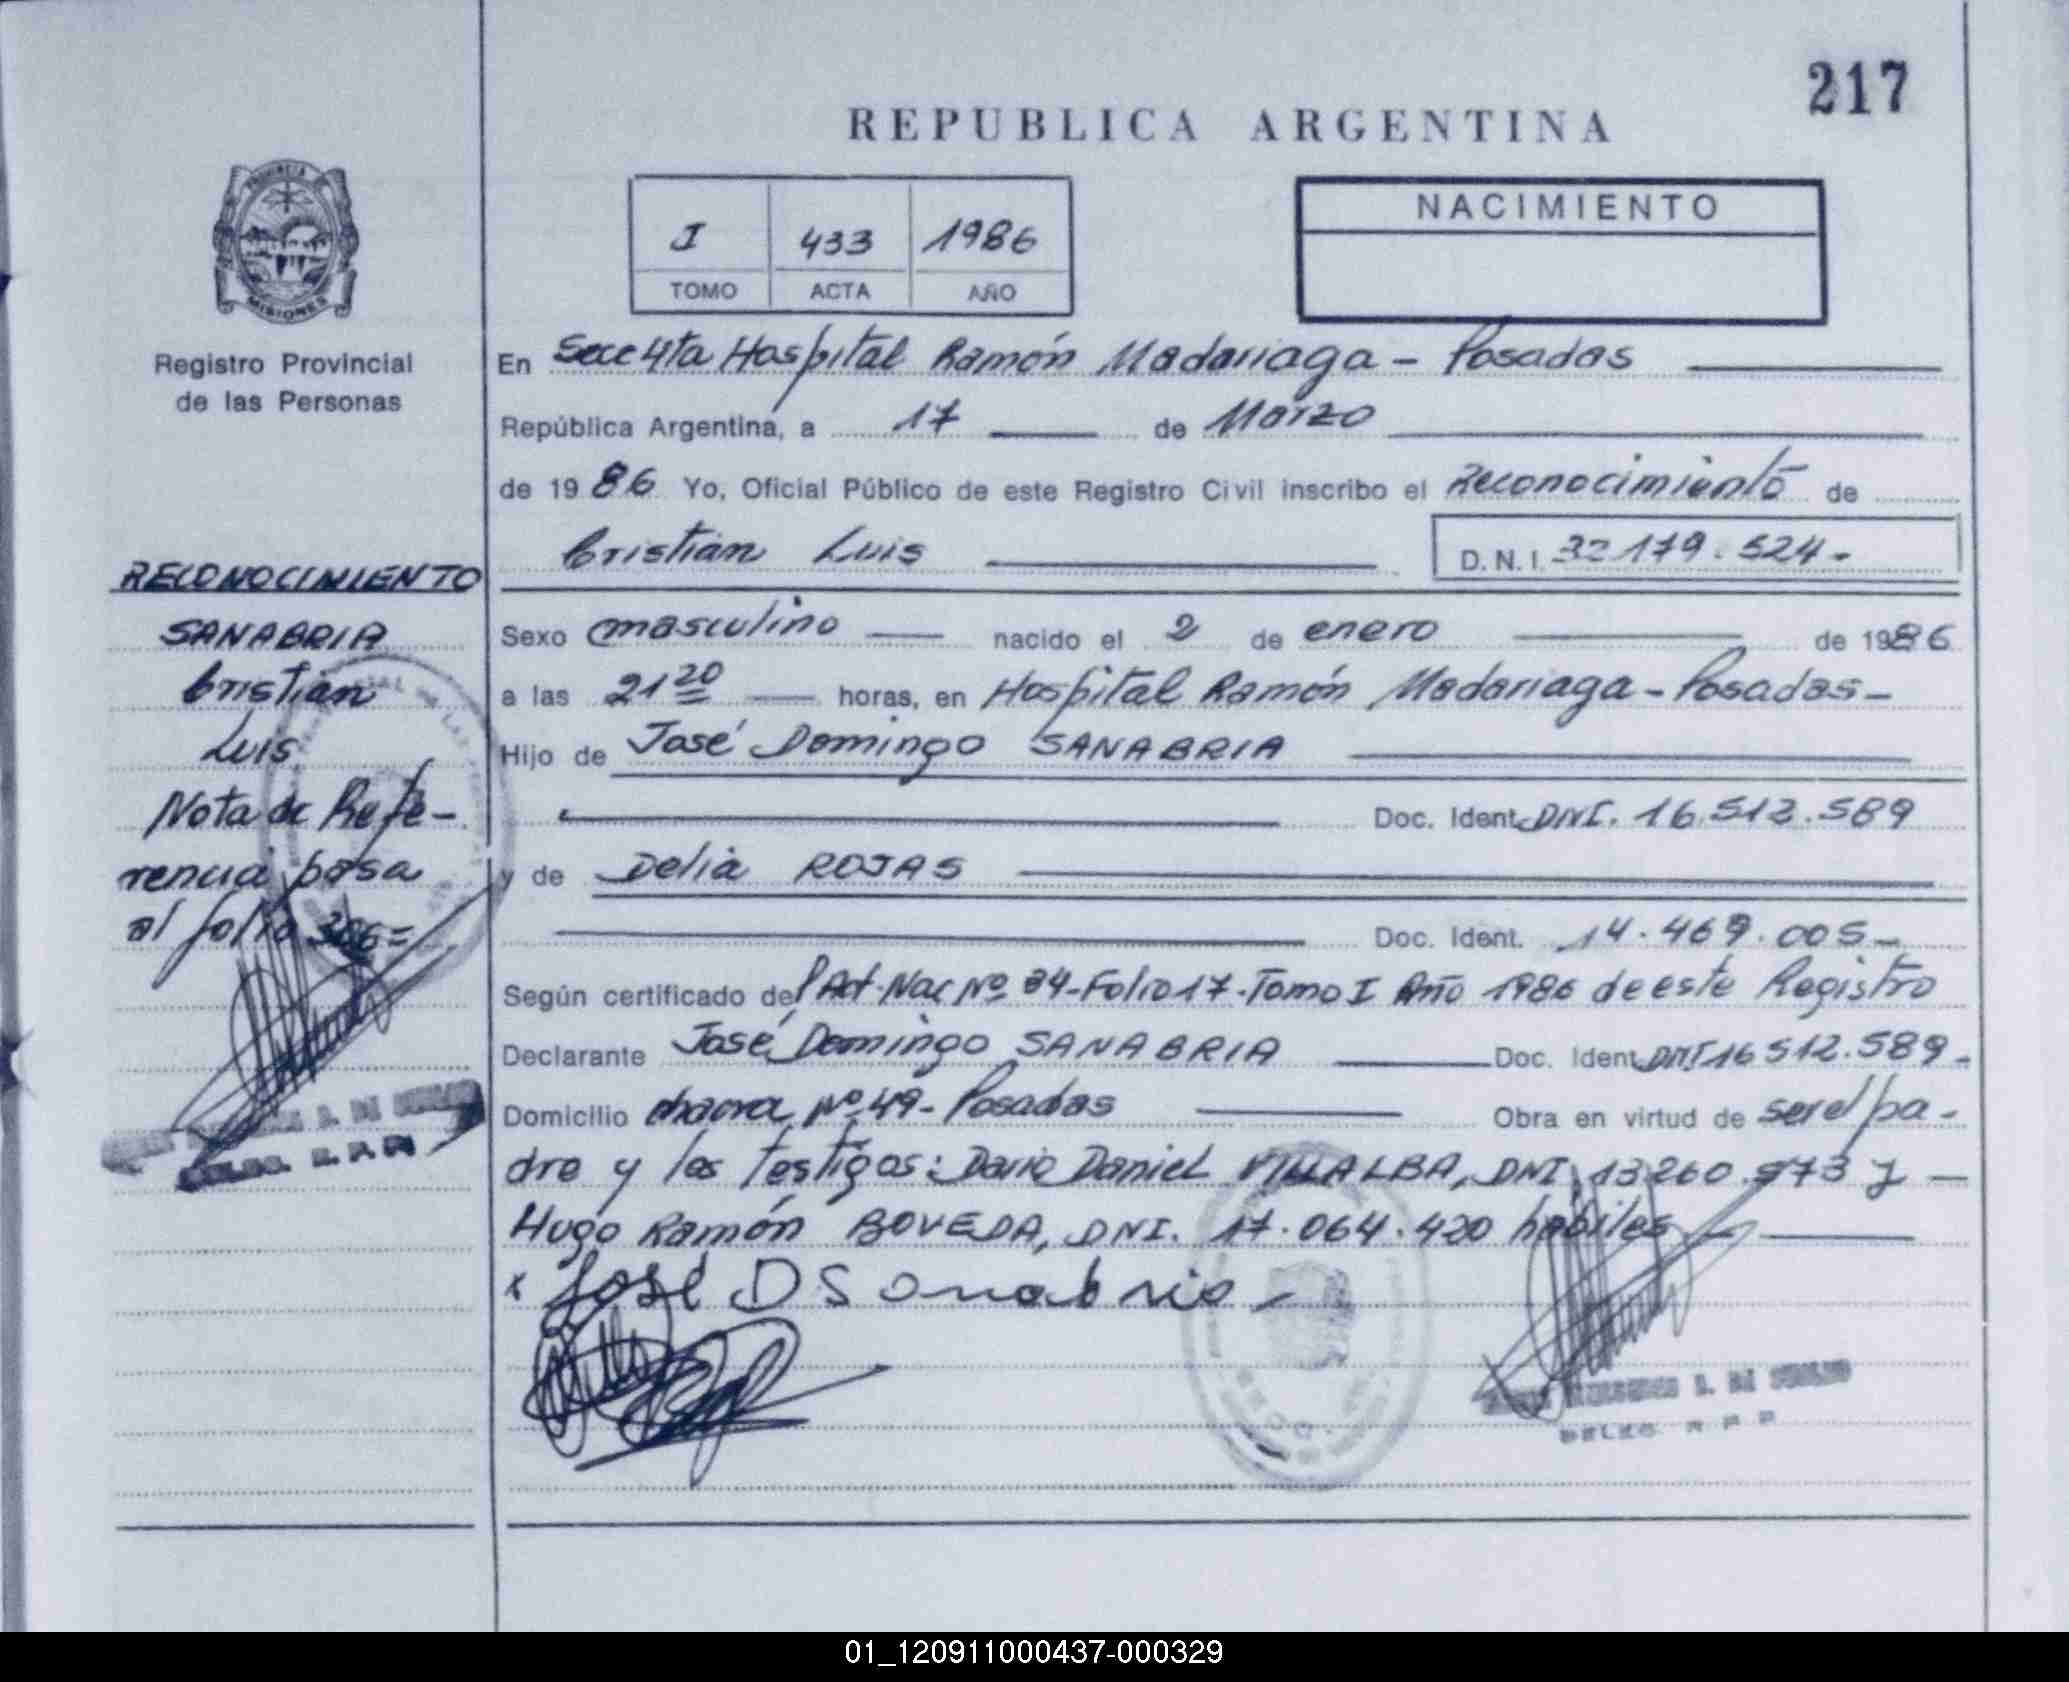 217
REPUBLICA ARGENTINA
PROVINCIA DE
MISIONES
Registro Provincial
de las Personas
I 433 1986
TOMO ACTA AÑO
NACIMIENTO
En Secc 4ta Hospital Ramón Madariaga - Posadas
República Argentina, a 17 de Marzo
de 1986 Yo, Oficial Público de este Registro Civil inscribo el Reconocimiento de
Cristian Luis D.N.I. 32.179.524-
Sexo masculino nacido el 2 de enero de 1986
a las 21 20 horas, en Hospital Ramón Madariaga - Posadas -
Hijo de José Domingo SANABRIA
Doc. Ident. DNI. 16.512.589
y de Delia ROJAS
Doc. Ident. 14.469.005-
Según certificado del Act. Nac Nº 84-Folio 17-Tomo I Año 1986 de este Registro
Declarante José Domingo SANABRIA Doc. Ident. DNI 16 512.589-
Domicilio chacra Nº 49 - Posadas Obra en virtud de ser el pa-
dre y los testigos: Dario Daniel VILLALBA, DNI 13260.973 y
Hugo Ramón BOVEDA, DNI. 17.064.420 habiles
x José D Sanabria -
DELEG. R P P
RECONOCIMIENTO
SANABRIA
Cristian
Luis
Nota de Refe-
rencia pasa
al folio
DELEG. R. P. P.
01_120911000437-000329